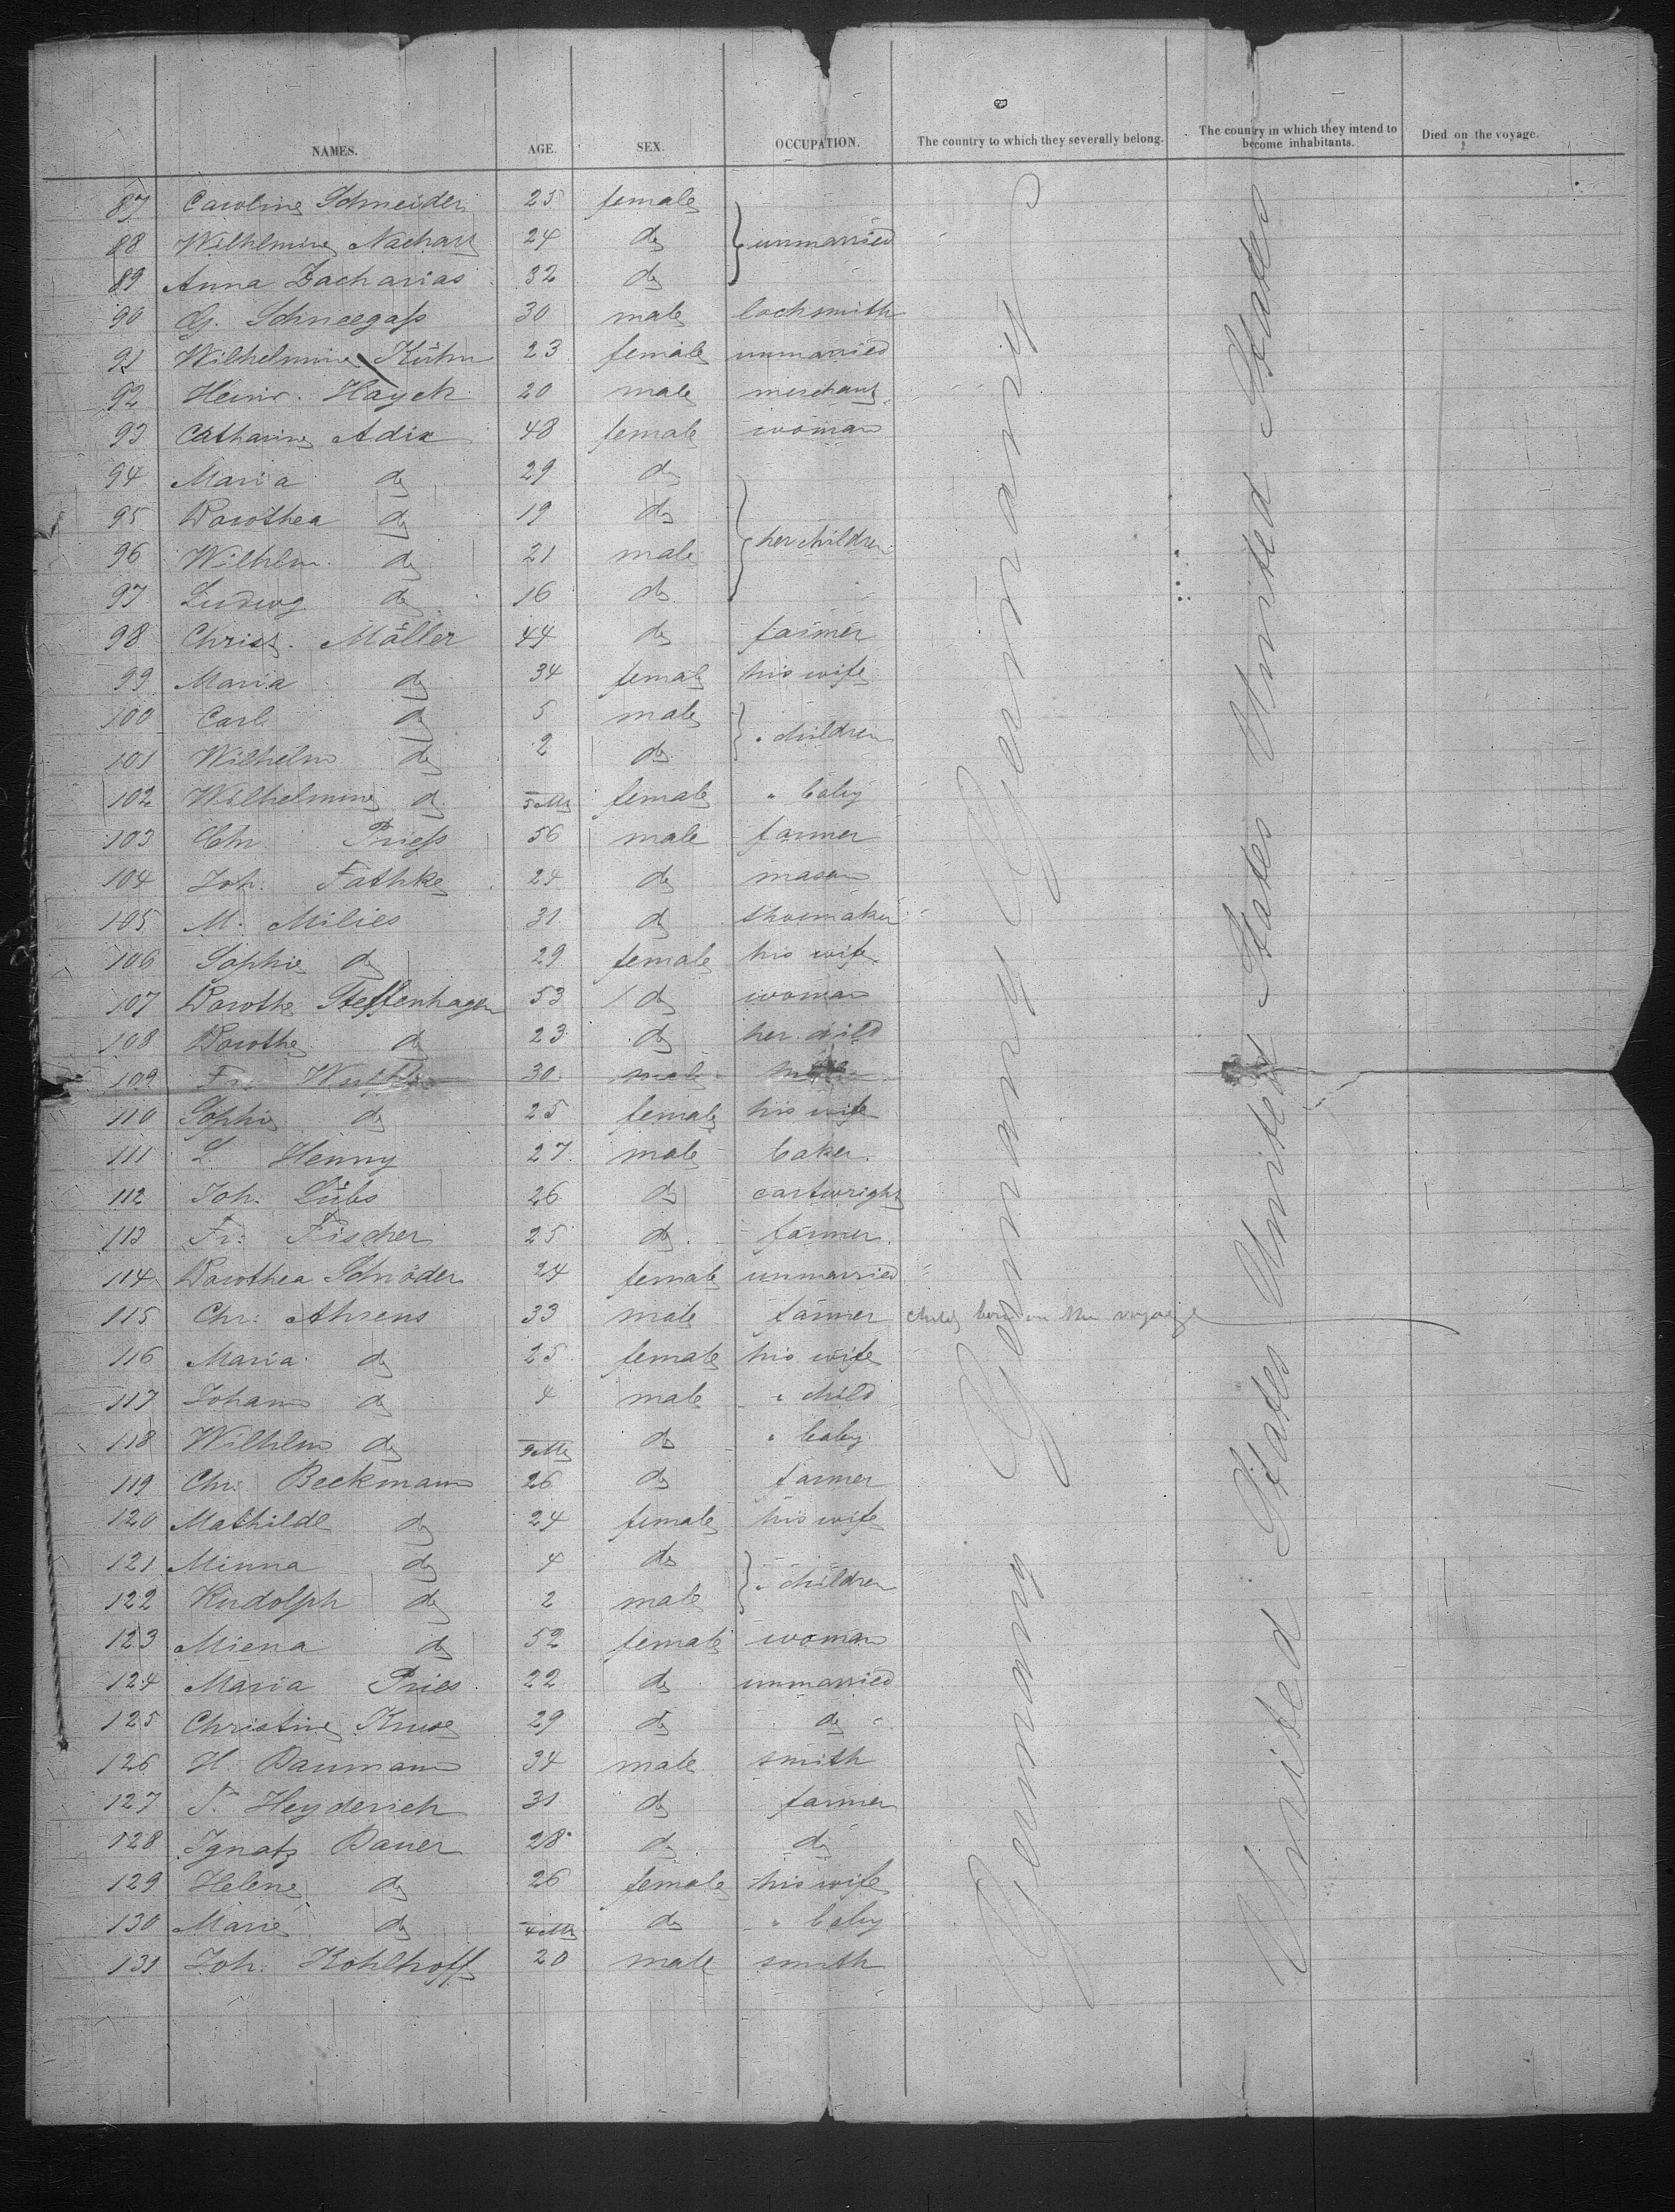 NAMES. AGE. SEX. OCCUPATION. The country to which they severally belong. The country in which they intend to become inhabitants. Died on the voyage.
87 Caroline Schneider 25 female
88 Wilhlmine 24 do } unmarried
89 Anna Zacharias 32 do
90 G. Schneegaß 30 male locksmith
91 Wilhelmine Kühn 23 female unmarried
92 Heinr. Hayck 20 male merchant
93 Catharine Adix 48 female woman
94 Maria do 29 do
95 Dorothea do 19 do
96 Wilhlm do 21 male } her children
97 Ludwg do 16 do
98 Christ. Möller 44 do farmer
99 Maria do 34 female his wife
100 Carl do 5 male
101 Wilhelm do 2 do } " children
102 Wilhelmine do 5 Mts female " baby
103 Chr Prieß 56 male farmer
104 Joh. Fathke 24 do mason
105 M. Milies 31 do shoemaker
106 Sophie do 29 female his wife
107 Dorothe Steffenhagen 53 do woman
108 Dorothe do 23 do her child
109 Fr. 30 male
110 Sophie do 25 female his wife
111 L. Henny 27 male baker
112 Joh. Lübs 26 do cartwright
113 Fr. Fischer 25 do farmer
114 Dorothea Schröder 24 female unmarried
115 Chr. Ahrens 33 male farmer child born on the voyage
116 Maria do 25 female his wife
117 Johann do 4 male " child
118 Wilhlm do 9 Mts do " baby
119 Chr. Beckmann 26 do farmer
120 Mathilde do 24 female his wife
121 Minna do 4 do
122 Rudolph do 2 male } " children
123 Miena do 52 female woman
124 Maria Pries 22 do unmarried
125 Christine Kruse 29 do do
126 H. Baumann 34 male smith
127 F. Heyderich 31 do farmer
128 Ignatz Bauer 28 do do
129 Helene do 26 female his wife
130 Marie do 4 Mts do " baby
131 Joh. Kohlhoff 20 male smith
Germany Germany Germany
United States United States United States